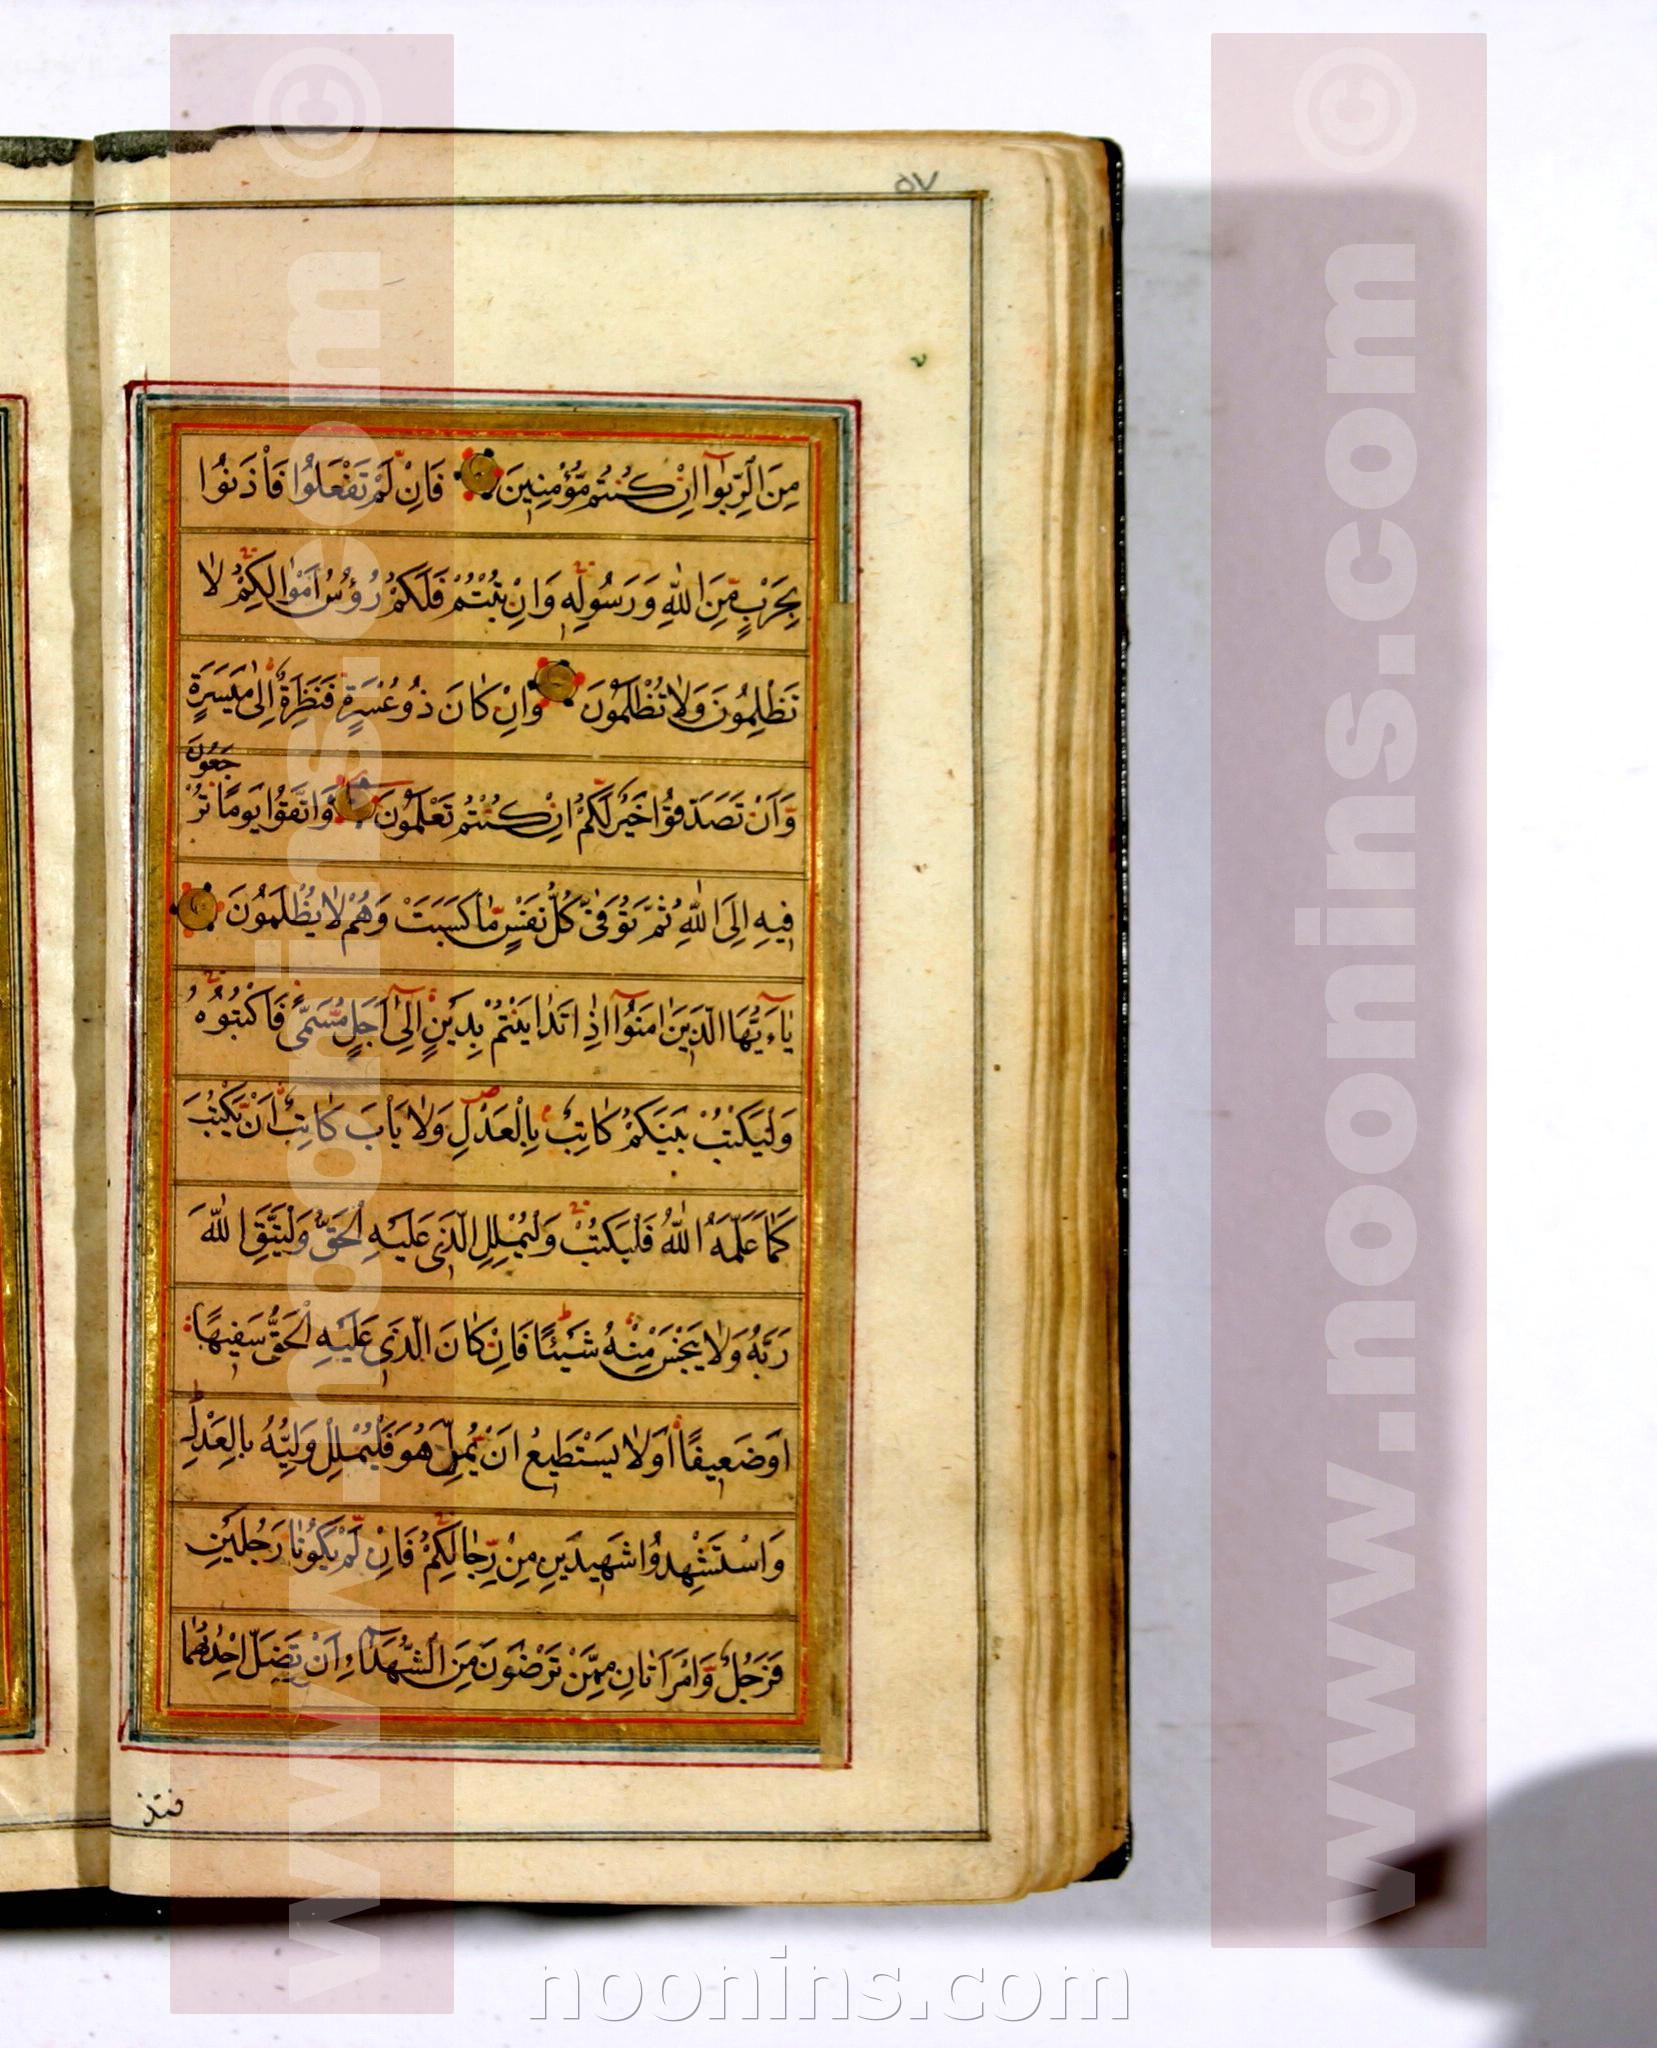 ٥٧
مِنَ الرِّبٰوآ اِنْ كُنْتُمْ مُؤْمِنِينَ فَاِنْ لَمْ تَفْعَلُوا فَاْذَنُوا
بِحَرْبٍ مِنَ اللّٰهِ وَرَسُولِهِ وَاِنْ تُبْتُمْ فَلَكُمْ رُؤُسُ اَمْوٰالِكُمْ لٰا
تَظْلِمُونَ وَلٰا تُظْلَمُونَ وَاِنْ كٰانَ ذُو عُسْرَةٍ فَنَظِرَةٌ اِلىٰ مَيْسَرَةٍ
جَعُونَ
وَاَنْ تَصَدَّقُوا خَيْرٌ لَكُمْ اِنْ كُنْتُمْ تَعْلَمُونَ وَاتَّقُوا يَوْمًا تُرْ
فِيهِ اِلَى اللّٰهِ ثُمَّ تُوَفّىٰ كُلُّ نَفْسٍ مٰا كَسَبَتْ وَهُمْ لٰا يُظْلَمُونَ
يٰآءَيُّهَا الَّذِينَ اٰمَنُوآ اِذٰا تَدٰايَنْتُمْ بِدَيْنٍ اِلىٰٓ اَجَلٍ مُسَمًّى فَاكْتُبُوهُ
وَلْيَكْتُبْ بَيْنَكُمْ كٰاتِبٌ بِالْعَدْلِ وَلٰا يَاْبَ كٰاتِبٌ اَنْ يَكْتُبَ
كَمٰا عَلَّمَهُ اللّٰهُ فَلْيَكْتُبْ وَلْيُمْلِلِ الَّذِى عَلَيْهِ الْحَقُّ وَلْيَتَّقِ اللّٰهَ
رَبَّهُ وَلٰا يَبْخَسْ مِنْهُ شَيْئًا فَاِنْ كٰانَ الَّذِى عَلَيْهِ الْحَقُّ سَفِيهًا
اَوْ ضَعِيفًا اَوْ لٰا يَسْتَطِيعُ اَنْ يُمِلَّ هُوَ فَلْيُمْلِلْ وَلِيُّهُ بِالْعَدْلِ
وَاسْتَشْهِدُوا شَهِيدَيْنِ مِنْ رِجٰالِكُمْ فَاِنْ لَمْ يَكُونٰا رَجُلَيْنِ
فَرَجُلٌ وَامْرَاَتٰانِ مِمَّنْ تَرْضَوْنَ مِنَ الشُّهَدٰآءِ اَنْ تَضِلَّ اِحْدٰيهُمٰا
فتذ
© www.noonins.com
© www.noonins.com
noonins.com